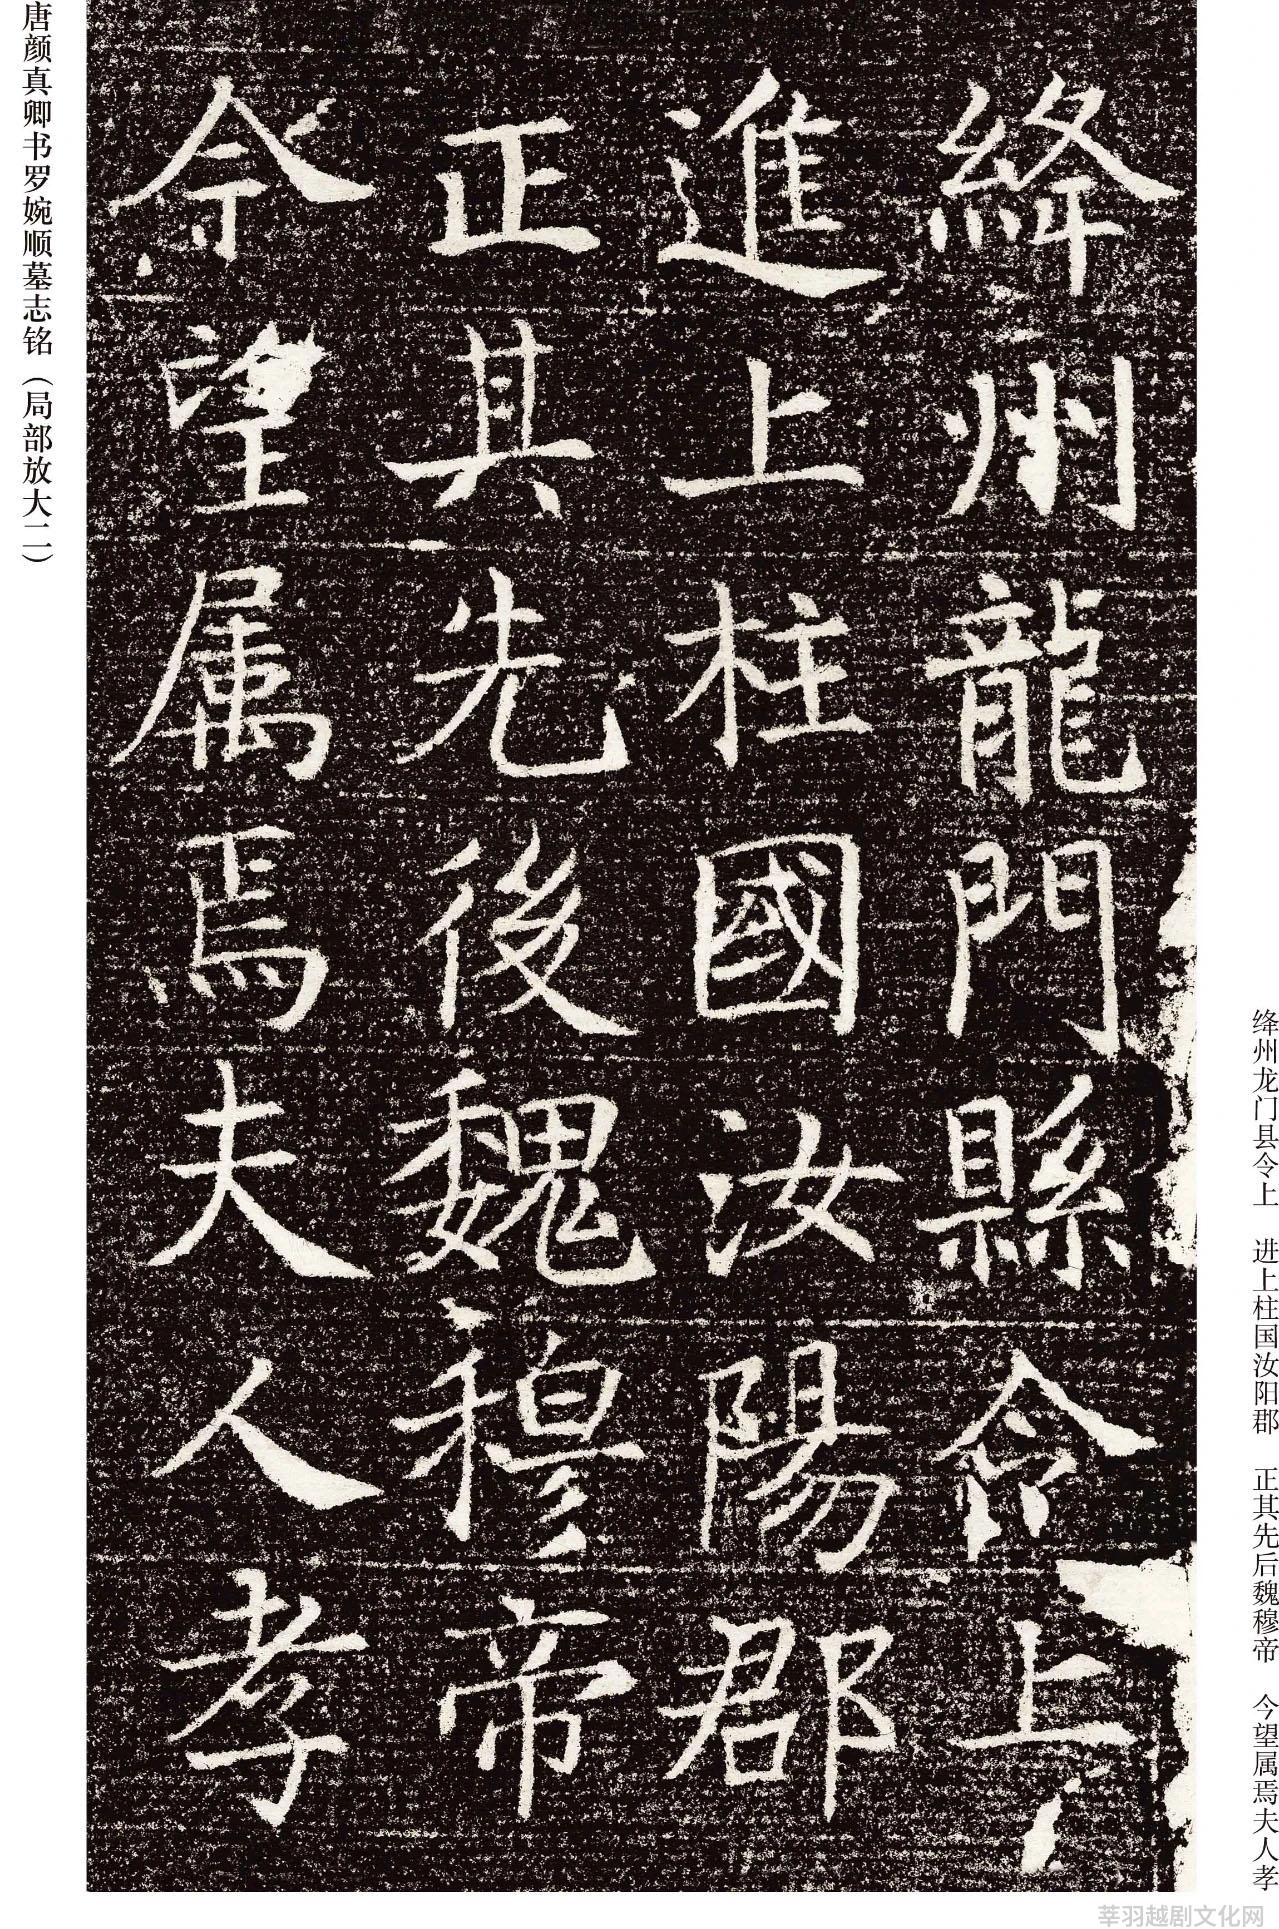 絳州龍門縣令上
進上柱國汝陽郡
正其先後魏穆帝
今望属焉夫人孝
唐颜真卿书罗婉顺墓志铭（局部放大二）
绛州龙门县令上　进上柱国汝阳郡　正其先后魏穆帝　今望属焉夫人孝
莘羽越剧文化网